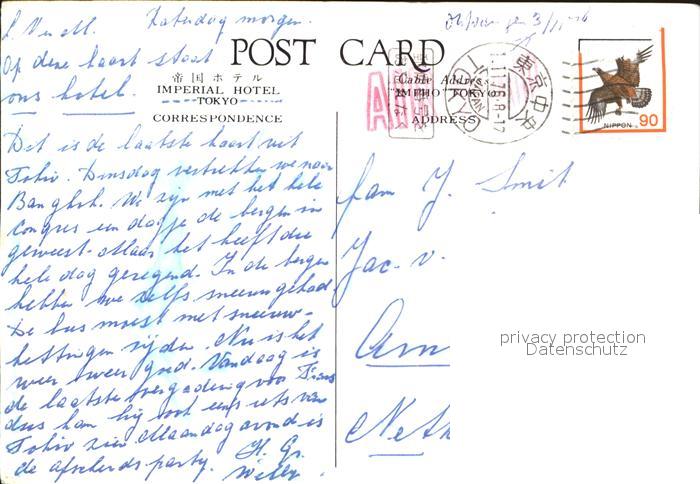 L. V en M. Zaterdag morgen.
Op deze kaart staat
ons hotel.
POST CARD
帝国ホテル
IMPERIAL HOTEL
TOKYO
CORRESPONDENCE
Cable Address
"IMPHO" TOKYO
ADDRESS
東京中央
TOKYO
JAPAN
NIPPON 90
Dit is de laatste kaart uit
Tokio. Dinsdag vertrekken we naar
Bangkok. We zijn met het hele
congres een dagje de bergen in
geweest. Maar het heeft die
hele dag geregend. In de bergen
hebben we zelfs sneeuw gehad
De bus moest met sneeuw-
kettingen rijden. Nu is het
weer weer goed. Vandaag is
de laatste vergadering voor Frans
dus kan hij ook eens iets van
Tokio zien. Maandagavond is
de afscheids party. H. Gr.
Willy.
Fam J. Smit
Jac. v.
Am
Neth
privacy protection
Datenschutz